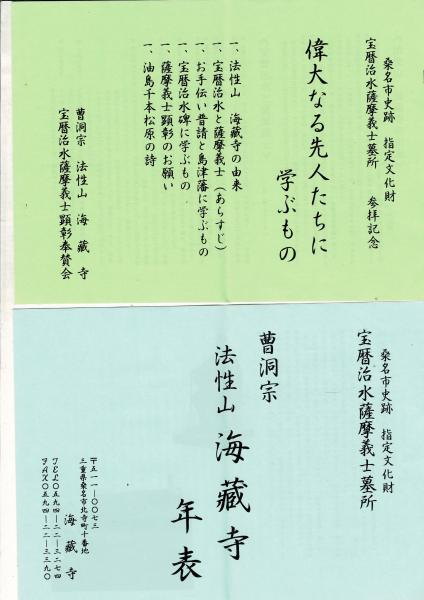 桑名市史跡 指定文化財
宝暦治水薩摩義士墓所 参拝記念
偉大なる先人たちに
学ぶもの
一、法性山 海蔵寺の由来
一、宝暦治水と薩摩義士(あらすじ)
一、お手伝い普請と島津藩に学ぶもの
一、宝暦治水碑に学ぶもの
一、薩摩義士顕彰のお願い
一、油島千本松原の詩
曹洞宗 法性山 海蔵寺
宝暦治水薩摩義士顕彰奉賛会
桑名市史跡 指定文化財
宝暦治水薩摩義士墓所
曹洞宗
法性山 海蔵寺
年表
〒五一一―〇〇七三
三重県桑名市北寺町十番地
海蔵寺
TEL〇五九四―二二―三二七四
FAX〇五九四―二二―三三九〇